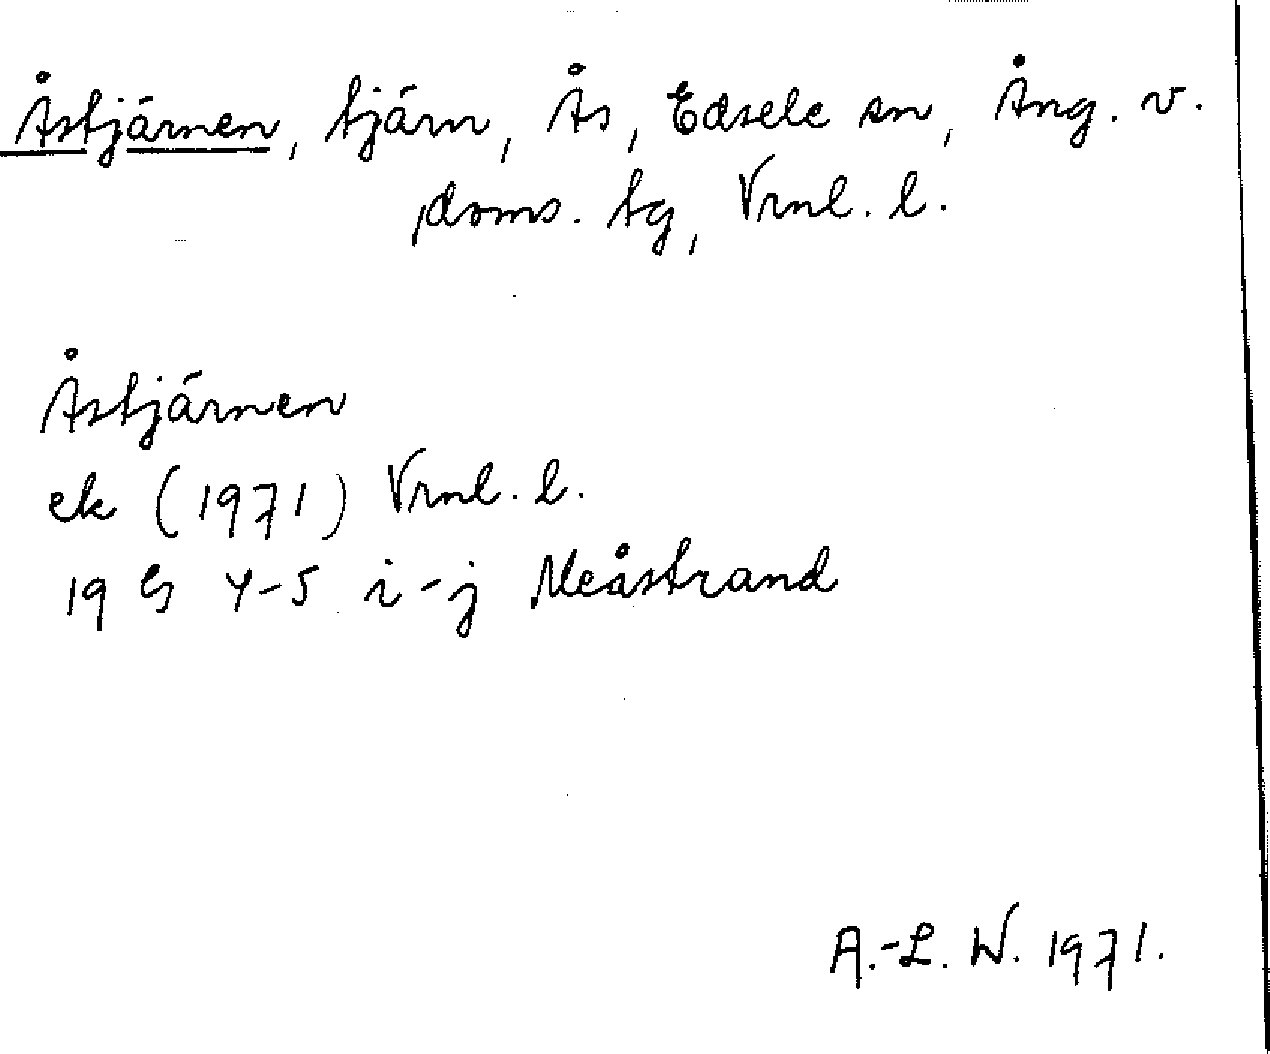 Åstjärnen, tjärn, Ås, Edsele sn, Ång. v.
doms. tg, Vrnl. l.
Åstjärnen
ek (1971) Vrnl. l.
19 G 4-5 i-j Meåstrand
A.-L. W. 1971.